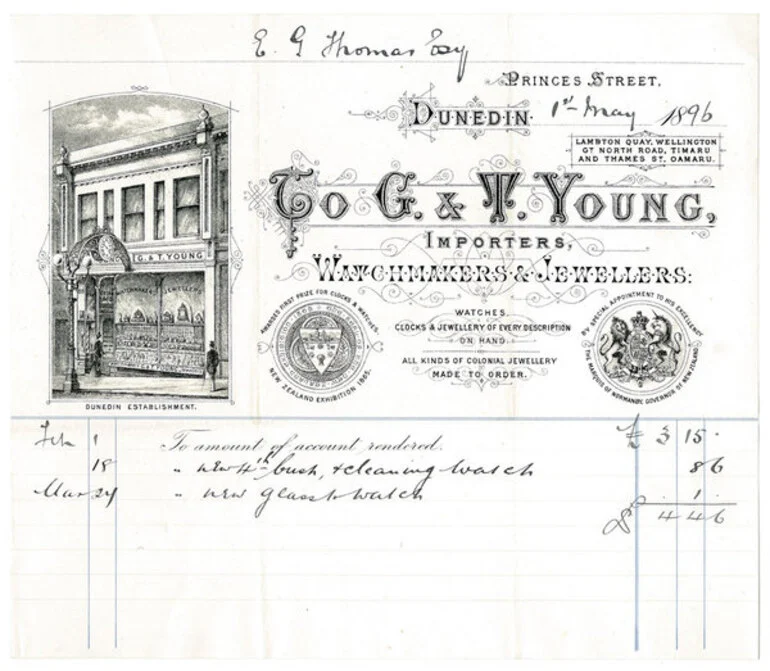 E. G Thomas Esq
PRINCES STREET,
DUNEDIN 1st May 1896
LAMBTON QUAY, WELLINGTON
GT NORTH ROAD, TIMARU
AND THAMES ST. OAMARU.
TO G. & T. YOUNG,
IMPORTERS,
WATCHMAKERS & JEWELLERS:
G. & T. YOUNG
WATCHMAKERS JEWELLERS
DUNEDIN ESTABLISHMENT.
AWARDED FIRST PRIZE FOR CLOCKS & WATCHES
NEW ZEALAND EXHIBITION 1865.
WATCHES.
CLOCKS & JEWELLERY OF EVERY DESCRIPTION
ON HAND.
ALL KINDS OF COLONIAL JEWELLERY
MADE TO ORDER.
BY SPECIAL APPOINTMENT TO HIS EXCELLENCY
THE MARQUIS OF NORMANBY, GOVERNOR OF NEW ZEALAND
Feb 1 To amount of account rendered. £ 3 15 .
18 " new 4th bush, & cleaning watch 8 6
Mar 24 " new glass to watch . 1 .
4 4 6